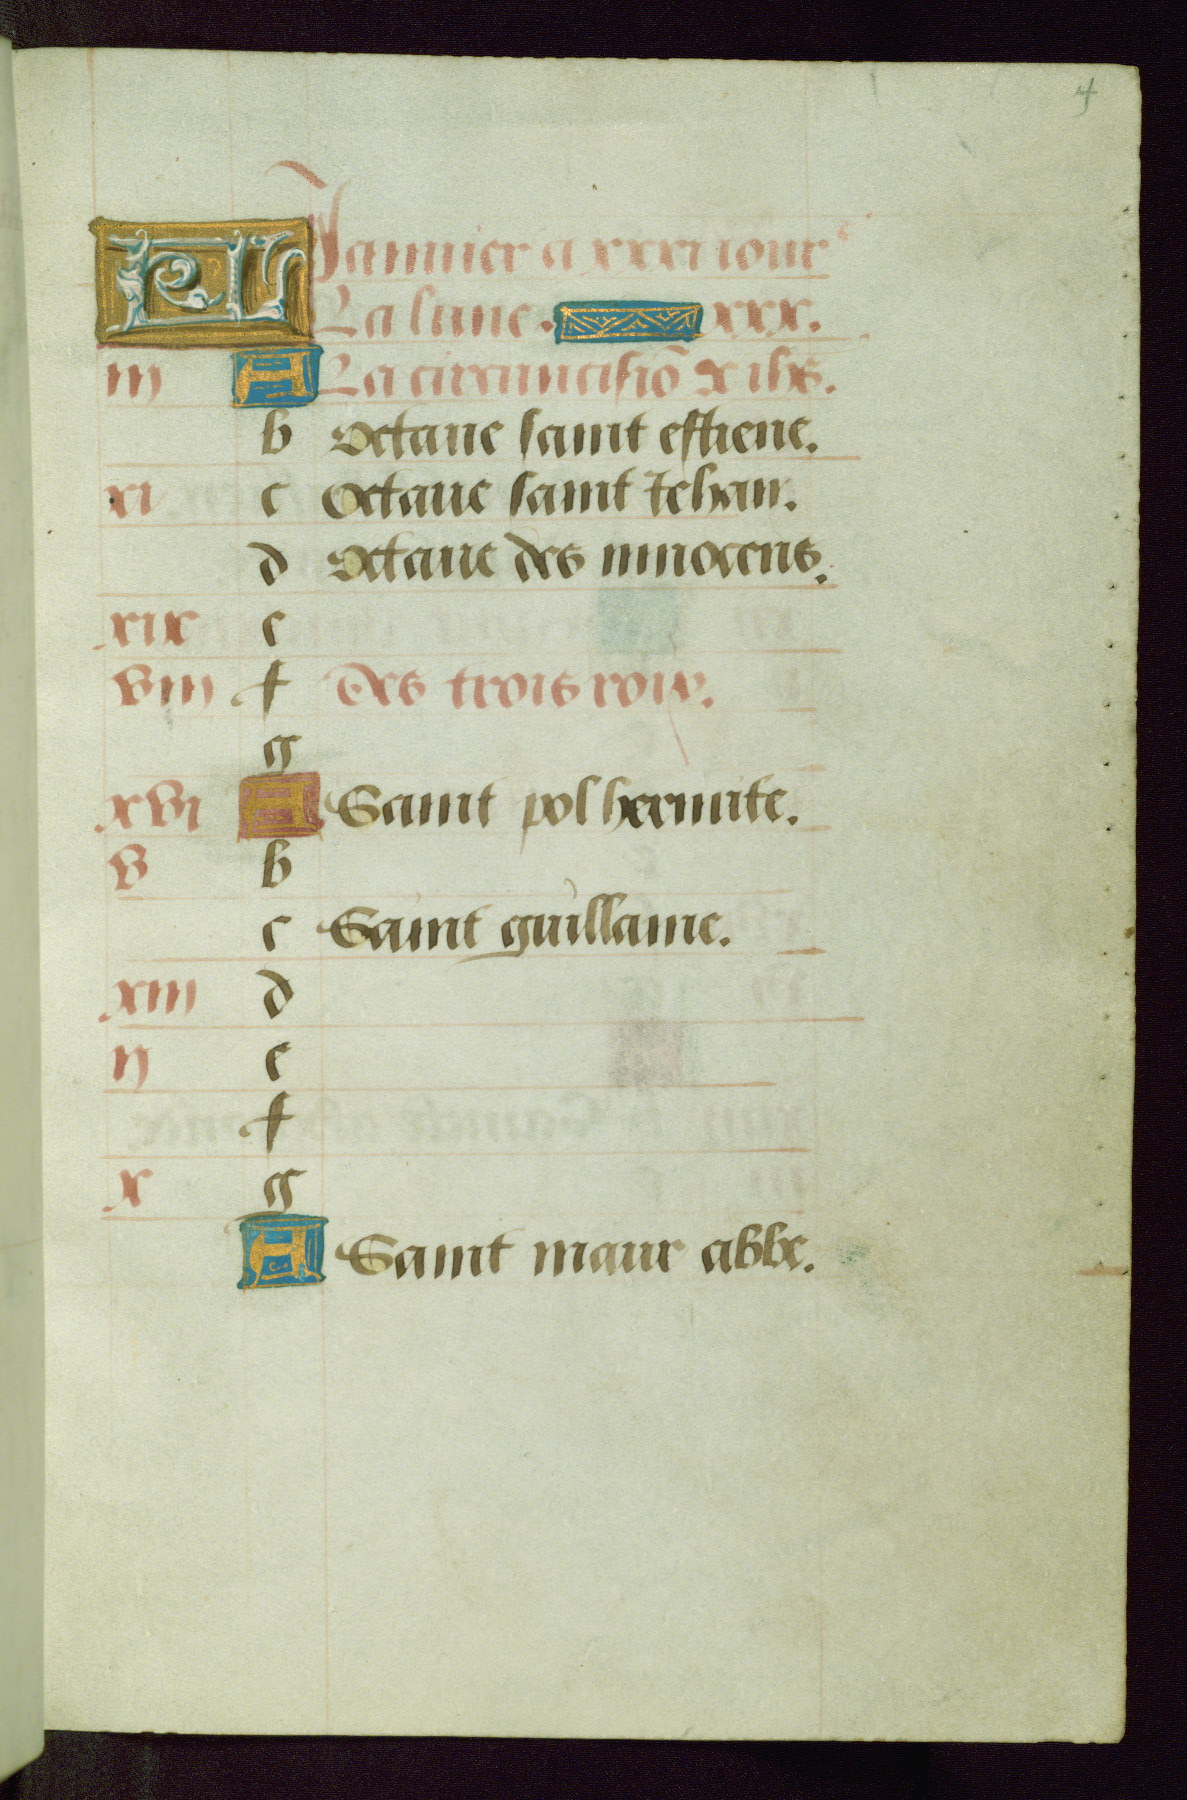 4
KL Jannier a xxxi iour
La lune. xxx.
iii A La circuncisiõ de ihs.
b Octaue saint estiene.
xi c Octaue saint Jehan.
d Octaue des innocens.
xix e
viii f Des trois roix.
g
xvi A Saint pol hermite.
v b
c Saint guillame.
xiii d
ii e
f
x g
A Saint maur abbe.